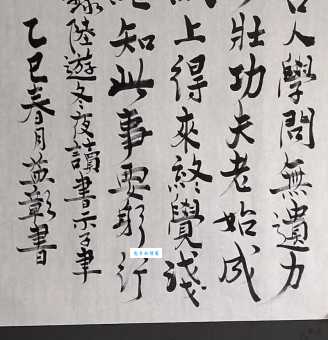 人學問無遺力
壯功夫老始成
上得來終覺淺
知此事要躬行
錄陸遊冬夜讀書示子聿
乙巳春月彰書